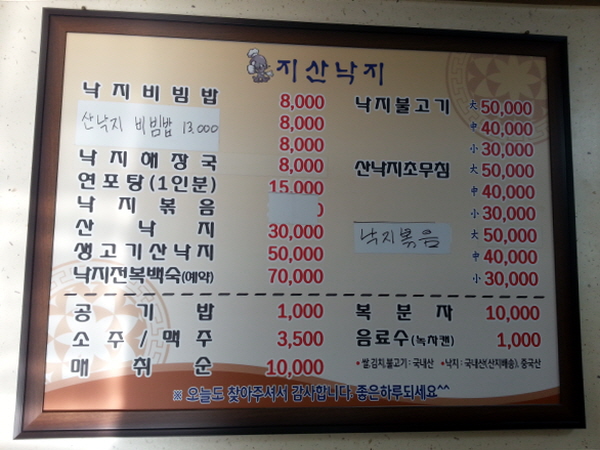 지산낙지
낙지비빔밥 8,000
산낙지 비빔밥 13,000 8,000
8,000
낙지해장국 8,000
연포탕(1인분) 15,000
낙지볶음 0
산낙지 30,000
생고기산낙지 50,000
낙지전복백숙(예약) 70,000
공기밥 1,000
소주/맥주 3,500
매취순 10,000
낙지불고기 大 50,000
中 40,000
小 30,000
산낙지초무침 大 50,000
中 40,000
小 30,000
낙지볶음 大 50,000
中 40,000
小 30,000
복분자 10,000
음료수(녹차캔) 1,000
*쌀,김치,불고기 : 국내산 *낙지 : 국내산(산지배송), 중국산
※ 오늘도 찾아주셔서 감사합니다. 좋은하루되세요^^